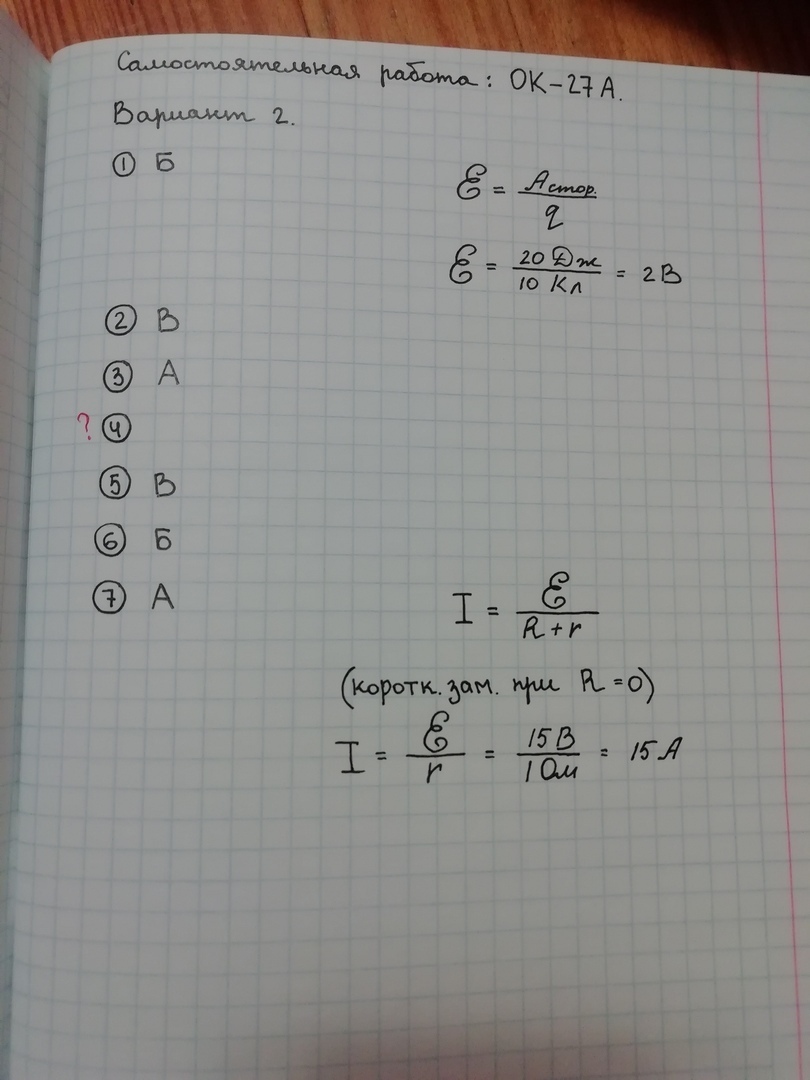 Самостоятельная работа: ОК-27А.
Вариант 2.
① Б
ℰ = Aстор. / q
ℰ = 20 Дж / 10 Кл = 2В
② В
③ А
? ④
⑤ В
⑥ Б
⑦ А
I = ℰ / R+r
(коротк. зам. при R=0)
I = ℰ / r = 15В / 1 Ом = 15 А